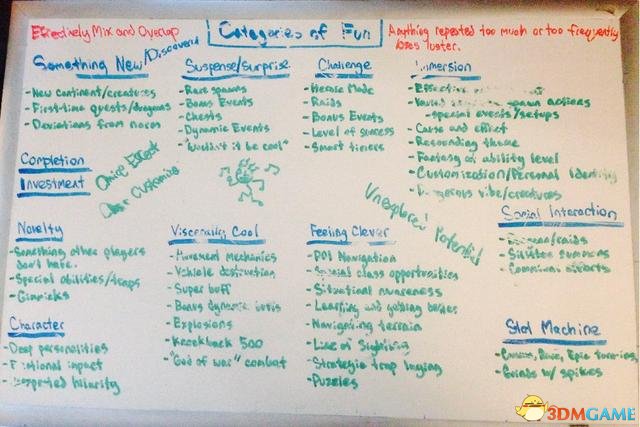 Effectively Mix and Overlap
Categories of Fun
Anything repeated too much or too frequently
loses luster.
Something New/Discovery
- New continent/creatures
- First-time quests/dungeons
- Deviations from norm
Suspense/surprise
- Rare spawns
- Bonus Events
- Chests
- Dynamic Events
- "Wouldn't it be cool"
Challenge
- Heroic Mode
- Raids
- Bonus Events
- Level of success
- Smart timers
Immersion
- Effective
- Varied spawn actions
- special events/setups
- Cause and effect
- Resounding theme
- Fantasy of ability level
- Customization/Personal Identity
- Dangerous vibe/creatures
Completion
Investment
Choice Effect
User Customize
Unexplored Potential
Novelty
- Something other players
don't have.
- Special abilities/traps
- Gimmicks
Viscerally Cool
- Movement mechanics
- Vehicle destruction
- Super buff
- Bonus dynamic
- Explosions
- Knockback 500
- "God of War" combat
Feeling Clever
- POI Navigation
- Special class opportunities
- Situational awareness
- Learning and getting better
- Navigating terrain
- Line of Sighting
- Strategic trap laying
- Puzzles
Social Interaction
- /raids
- summons
- Communal efforts
Character
- Deep personalities
- impact
- hilarity
Slot Machine
- Epic
- w/ spikes
3DMGAME